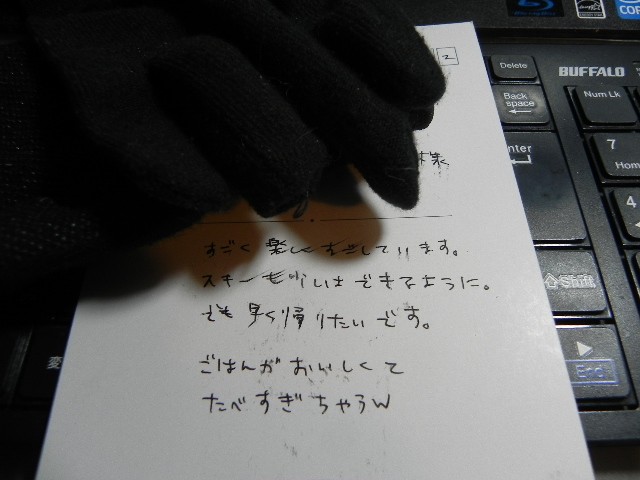 2
様
すごく楽しく過しています。
スキーも少しはできるように。
でも早く帰りたいです。
ごはんがおいしくて
たべすぎちゃうw
Delete
BUFFALO
Back
space
Num Lk
nter
7
Home
4
Shift
End
変